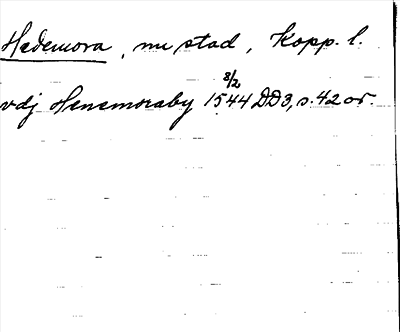 Hedemora, nu stad, Kopp. l.
vdj Henemoraby 8/2 1544 DD3, s. 42 or.